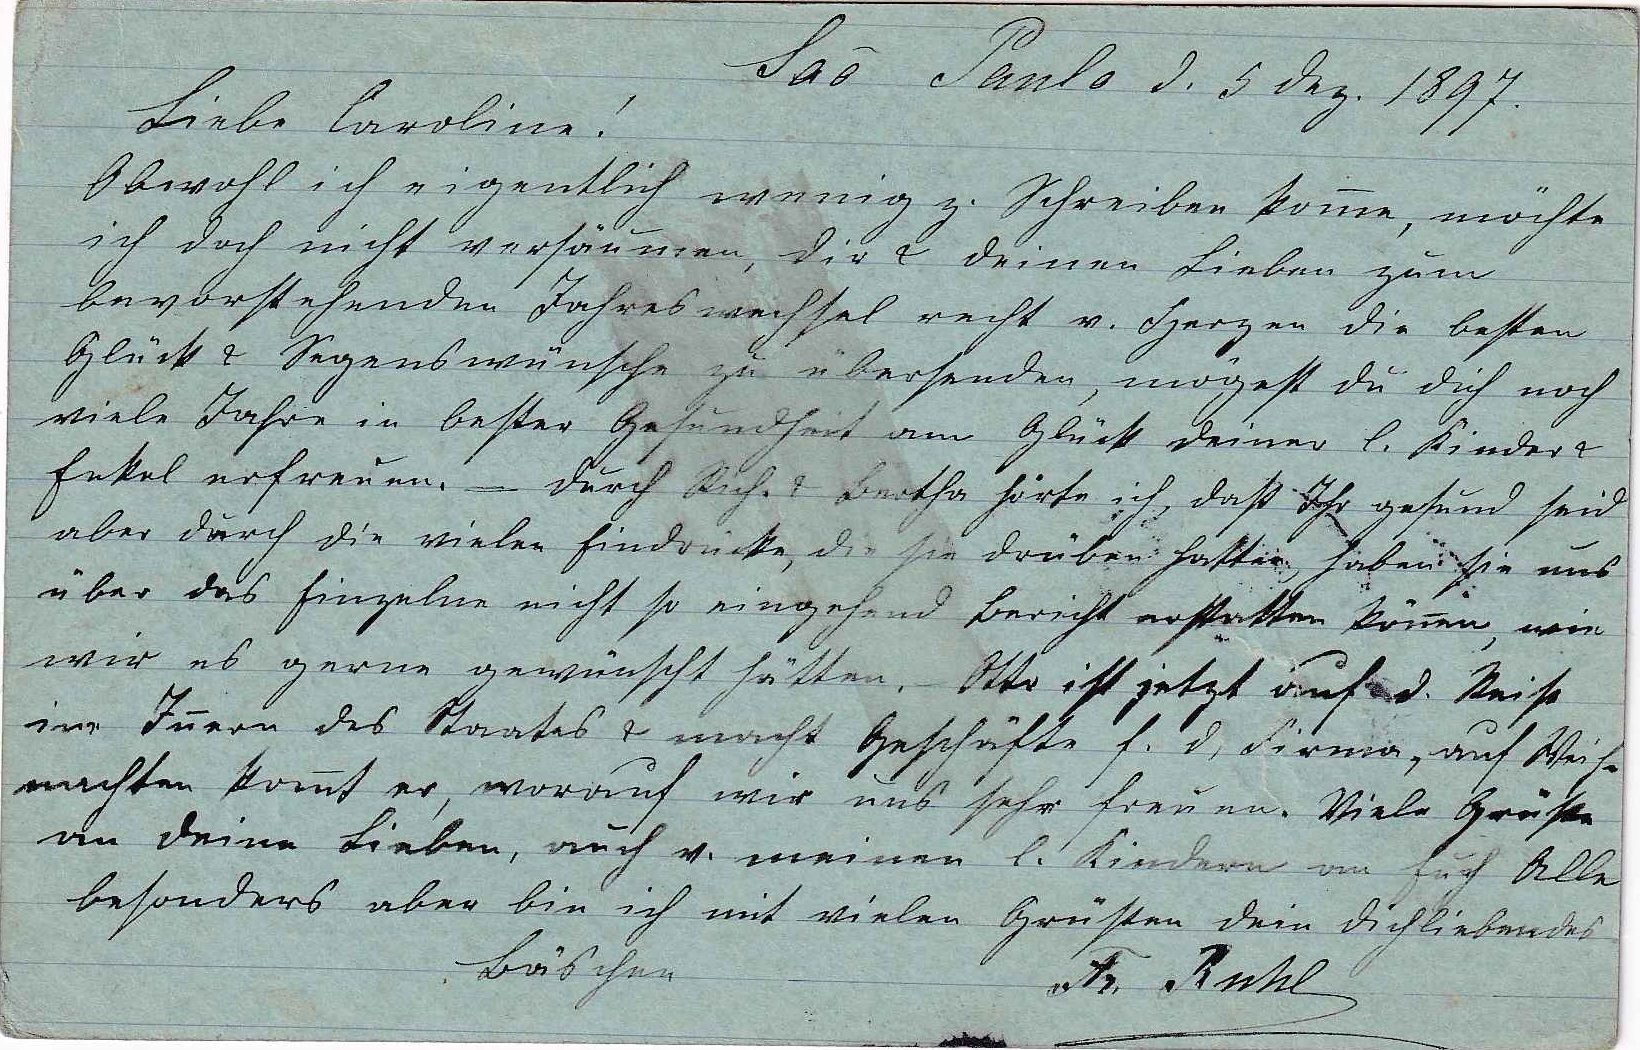 Saõ Paulo d. 5 Dez. 1897.
Liebe Caroline!
Obwohl ich eigentlich wenig z. Schreiben kom̄e, möchte
ich doch nicht versäumen, dir & deinen Lieben zum
bevorstehenden Jahreswechsel recht v. Herzen die besten
Glück & Segenswünsche zu übersenden, mögest du dich noch
viele Jahre in bester Gesundheit am Glück deiner l. Kinder &
Enkel erfreuen. — Durch Rich. & Bertha hörte ich, daß Ihr gesund seid
aber durch die vielen Eindrücke, die sie drüben hatten, haben sie uns
über das Einzelne nicht so eingehend Bericht erstatten kön̄en, wie
wir es gerne gewünscht hätten. — Otto ist jetzt auf d. Reise
im In̄ern des Staates & macht Geschäfte f. d. Firma, auf Weih-
nachten kom̄t er, worauf wir uns sehr freuen. Viele Grüße
an deine Lieben, auch v. meinen l. Kindern an Euch Alle
besonders aber bin ich mit vielen Grüßen dein dichliebendes
Bäschen Fr. Ruhl